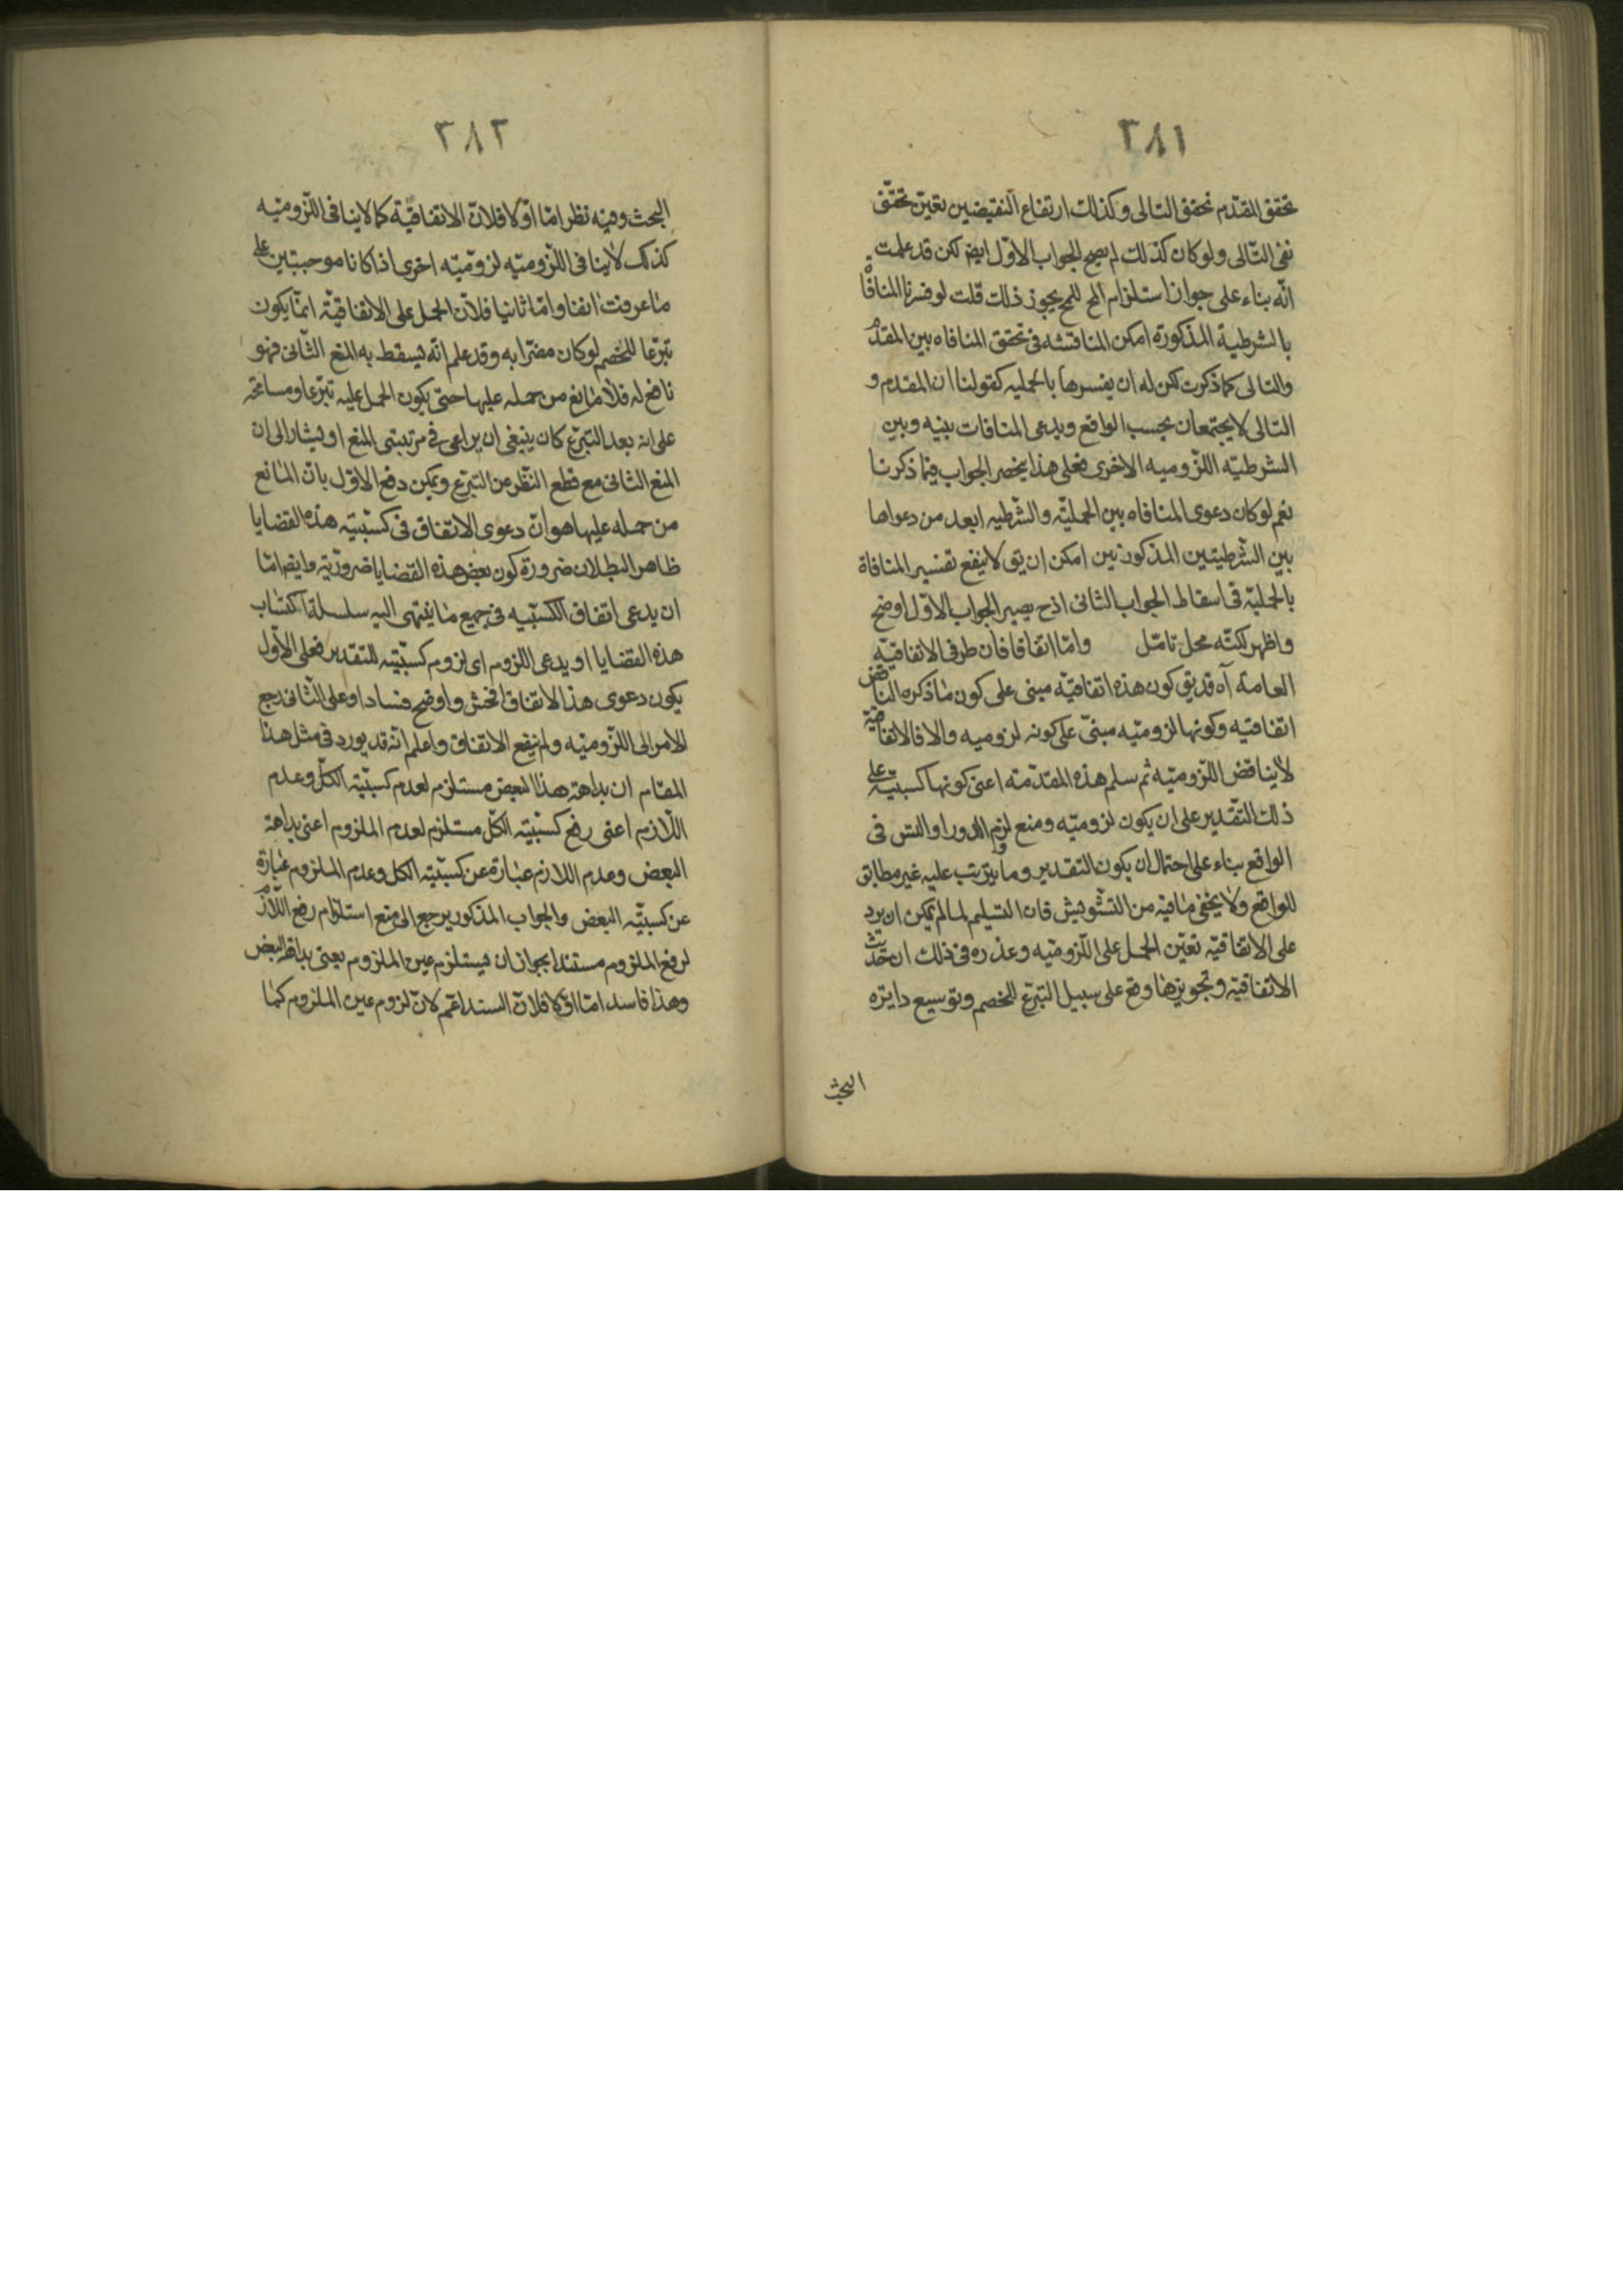 ٢٨١
تحقق المقدّم تحقق التالى وكذلك ارتفاع النقيضين بقين تحقّق
نفى التّالى ولو كان كذلك لم يصح الجواب الاوّل ايضم لكن قد علمت
انّه بناء على جواز استلزام المح للمح يجوز ذلك قلت لو فسرنا المنافا
بالشرطية المذكورة امكن المناقشه فى تحقق المنافاه بين المقدم
والتالى كما ذكرت لكن له ان يفسرها بالحمليه كقولنا ان المقدم و
التالى لا يجتمعان بحسب الواقع ويدعى المنافات بينه وبين
الشرطيّه اللّزوميه الاخرى فعلى هذا ينحصر الجواب فيما ذكرنا
نعم لو كان دعوى المنافاه بين الحمليّه والشّرطيه ابعد من دعواها
بين الشّرطيتين المذكورتين امكن ان يق لا ينفع تفسير المنافاة
بالحمليّه فى اسقاط الجواب الثانى اذ ح يصير الجواب الاوّل اوضح
واظهر لكنّه محل تامّل وامّا اتّفاقا فان طرفى الاتفاقيّه
العامة آه قد يق كون هذه اتفاقيّه مبنى على كون ما ذكره الناقض
اتفاقيّه وكونها لزوميّه مبنىّ على كونه لزوميه والا فالاتفاقية
لا يناقض اللّزوميّه ثم سلم هذه المقدّمة اعنى كونها كسبيّة على
ذلك التّقدير على ان يكون لزوميّه ومنع لزم الدور او التس فى
الواقع بناء على احتمال ان يكون التقدير وما يترتب عليه غير مطابق
للواقع ولا يخفى ما فيه من التّشويش فان التسليم لما لم يمكن ان يرد
على الاتفاقيّه تعيّن الحمل على اللّزوميّه وعذره فى ذلك ان حديث
الاتفاقيّه وتجويزها وقع على سبيل التبرّع للخصم وتوسيع دايره
البحث
٢٨٢
البحث وفيه نظر امّا اوّلا فلانّ الاتفاقيّة كما لا ينافى اللّزوميّه
كذلك لا ينافى اللّزوميّه لزوميّه اخرى اذا كانا موجبتين على
ما عرفت انفا وامّا ثانيا فلانّ الحمل على الاتفاقيّة انّما يكون
تبرّعا للخصم لو كان مضرّا به وقد علم انّه يسقط به المنع الثّانى فهو
نافع له فلا مانع من حمله عليها حتى يكون الحمل عليه تبرّعا ومسامحة
على انه بعد التبرّع كان ينبغى ان يراعى فى مرتبتى المنع او يشار الى ان
المنع الثانى مع قطع النّظر من التبرّع ويمكن دفع الاوّل بانّ المانع
من حمله عليها هو انّ دعوى الاتفاق فى كسبيّة هذه القضايا
ظاهر البطلان ضرورة كون بعض هذه القضايا ضروريّة وايضم امّا
ان يدعى اتفاق الكسبيّه فى جميع ما ينتهى اليه سلسلة اكتساب
هذه القضايا او يدعى اللزوم اى لزوم كسبيّته للتقدير فعلى الاوّل
يكون دعوى هذا الاتفاق افحش واوضح فسادا وعلى الثّانى رجع
الامر الى اللّزوميّه ولم ينفع الاتفاق واعلم انّه قد يورد فى مثل هذا
المقام ان بداهة هذا البعض مستلزم لعدم كسبيّة الكلّ وعدم
اللّازم اعنى رفع كسبيّة الكلّ مستلزم لعدم الملزوم اعنى بداهة
البعض وعدم اللازم عبارة عن كسبيّة الكل وعدم الملزوم عبارة
عن كسبيّه البعض والجواب المذكور يرجع الى منع استلزام رفع اللّازم
لرفع الملزوم مستندا بجواز ان يستلزم عين الملزوم يعنى بداهة البعض
وهذا فاسد امّا اوّلا فلانّ السند اعمّ لانّ لزوم عين الملزوم كما